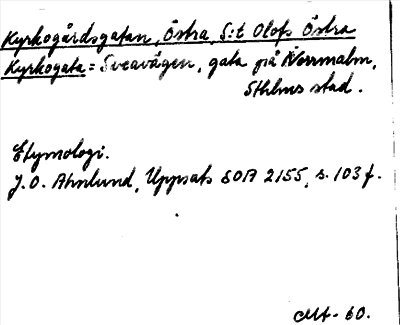 Kyrkogårdsgatan, Östra, S:t Olofs Östra
Kyrkogata = Sveavägen, gata på Norrmalm,
Sthlms stad.
Etymologi.
J.O. Ahnlund, Uppsats SOA 2155, s. 103 f.
60.